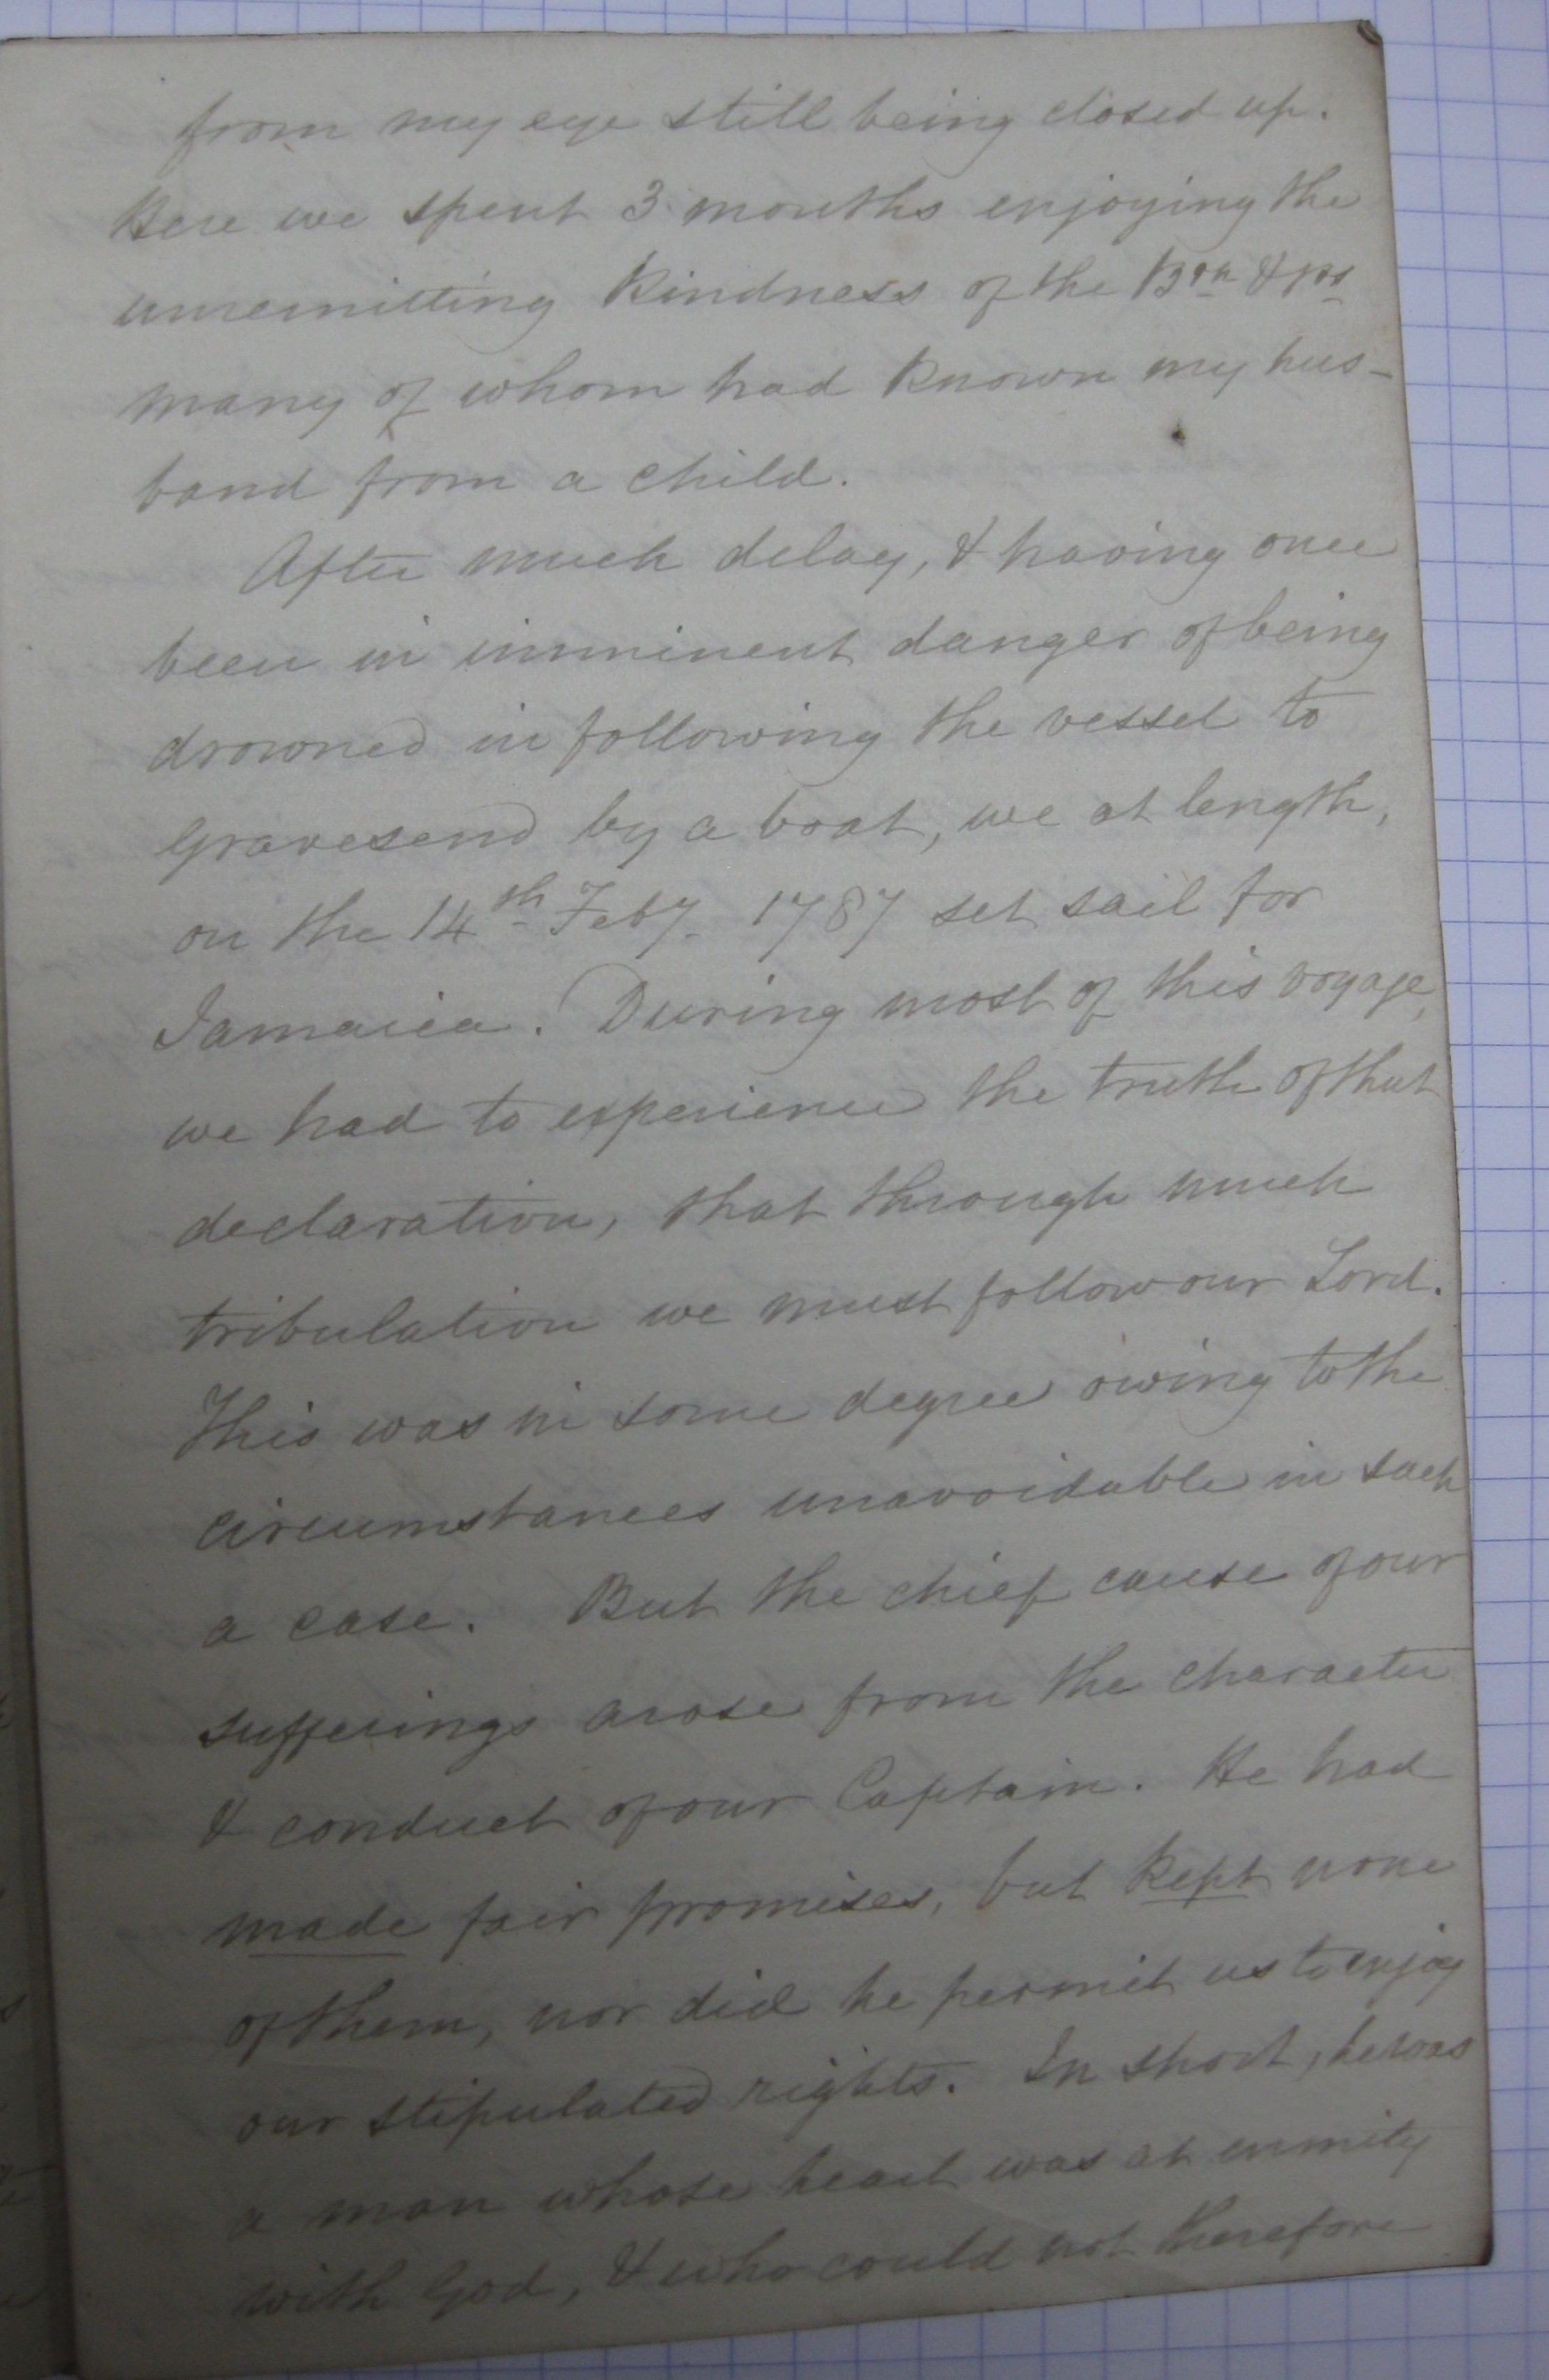 from my eye still being closed up.
Here we spent 3 months enjoying the
unremitting kindness of the Brn &
many of whom had known my hus-
band from a child.
After much delay, & having once
been in imminent danger of being
drowned in following the vessel to
Gravesend by a boat, we at length,
on the 14th Feby 1787 set sail for
Jamaica. During most of this voyage,
we had to experience the truth of that
declaration, that through much
tribulation we must follow our Lord.
This was in some degree owing to the
circumstances unavoidable in such
a case. But the chief cause of our
sufferings arose from the character
& conduct of our Captain. He had
made fair promises, but kept none
of them, nor did he permit us to enjoy
our stipulated rights. In short, he was
a man whose heart was at enmity
with God, & who could not therefore